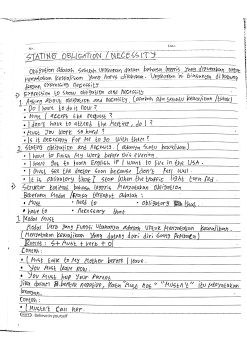 No. Date:
STATING OBLIGATION / NECESSITY
Obligation adalah sebuah ungkapan dalam bahasa Inggris yang digunakan untuk
menyatakan keharusan yang harus dilakukan. Ungkapan ini biasanya di pasang
dengan expressing necessity
→ Expression to show obligation and necessity
1. Asking about obligation and necessity (bertanya ada sesuatu keharusan / tidak)
• Do I have to do it now?
• Must I accept the request?
• I don't have to attend the meeting, do I?
• Must you work so hard?
• Is it necessary for me to go with them?
2. Stating obligation and necessity (adanya suatu keharusan)
• I have to finish my work before this evening.
• I have got to learn English if I want to live in the USA.
• I must see the doctor soon because I don't feel well
• It is obligatory that I stop when the traffic light turn red
→ Struktur kalimat bahasa Inggris menyatakan obligation
Beberapa modal adalah:
• must • need to • obligatory
• have to • necessary that
1. Modal Must
Modal verb yang fungsi utamanya adalah untuk menyatakan kewajiban.
(menyatakan kewajiban yang datang dari diri sang pembicara)
Rumus: S + Must + verb + O
Contoh:
• I must talk to my mother before I leave.
• You must leave now.
• You must help your parent
Jika dalam bentuk negative, kata must not "mustn't" itu menyatakan
larangan.
Contoh:
• I mustn't call her.
believe in yourself